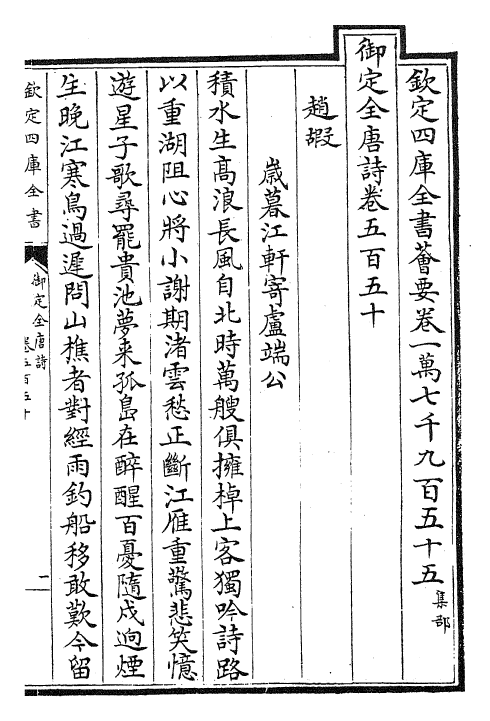 欽定四庫全書薈要卷一萬七千九百五十五
集部
御定全唐詩卷五百五十
趙嘏
歲暮江軒寄盧端公
積水生高浪長風自北時萬艘俱擁棹上客獨吟詩路
以重湖阻心將小謝期渚雲愁正斷江雁重驚悲笑憶
遊星子歌尋罷貴池夢來孤島在醉醒百憂隨戍迥煙
生晚江寒鳥過遲問山樵者對經雨釣船移敢歎今留
欽定四庫全書
御定全唐詩
卷五百五十
一